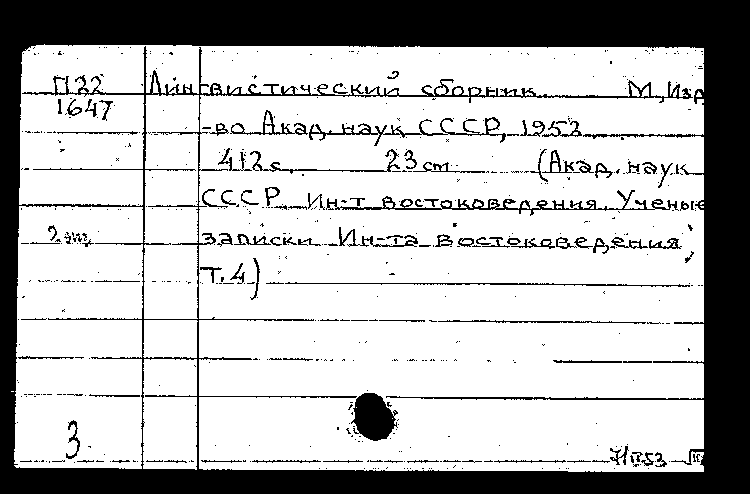 П22 Лингвистический сборник. М., Изд
1647
-во Акад. наук СССР, 1952
412 с. 23 cm (Акад. наук
СССР. Ин-т востоковедения. Ученые
2 экз. записки Ин-та востоковедения,
т. 4)
3
7/II 53